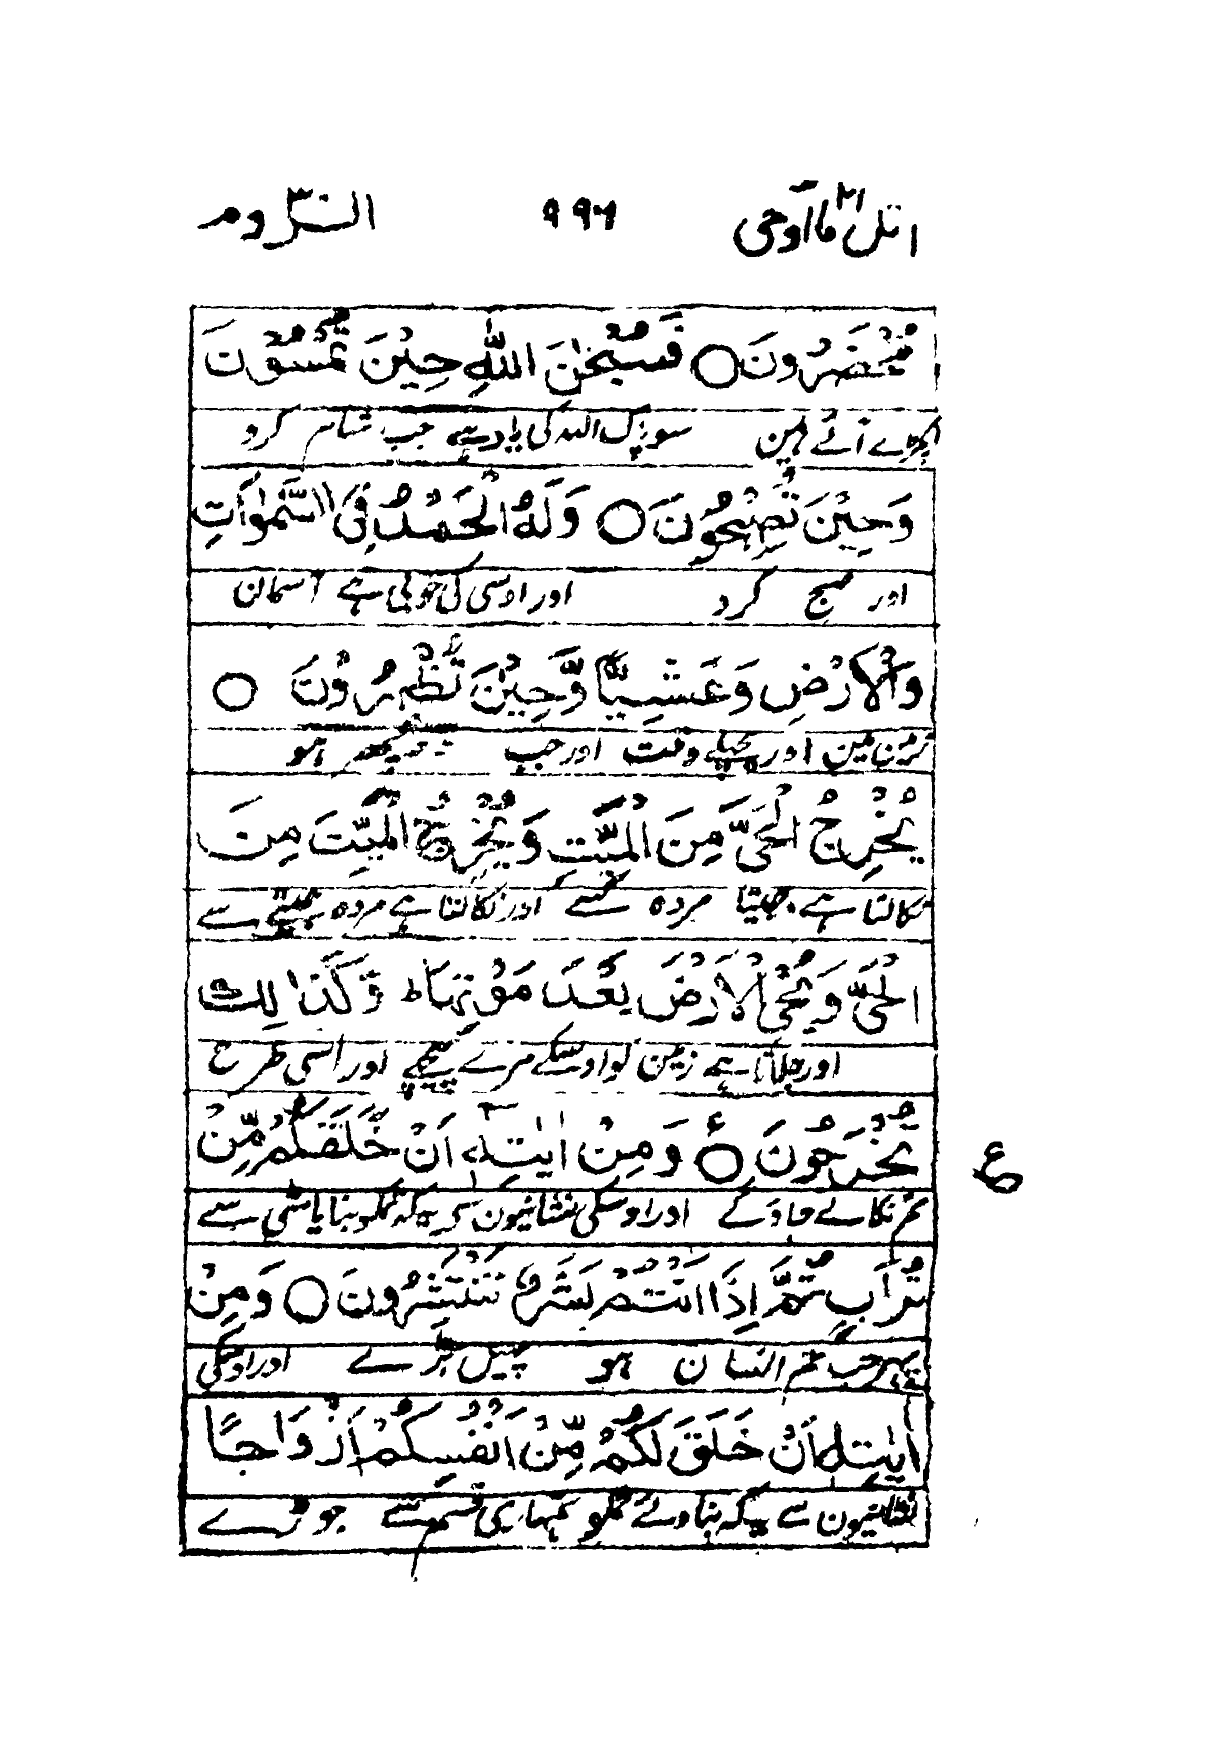 اتل ما اوحی ۲۱ ۹۹۶ الروم ۳۰
مُحْضَرُونَ ○ فَسُبْحٰنَ اللّٰهِ حِيْنَ تُمْسُوْنَ
پکڑے آئے ہین سو پاک اللہ کی یاد ہے جب شام کرو
وَحِيْنَ تُصْبِحُوْنَ ○ وَلَهُ الْحَمْدُ فِى السَّمٰوَاتِ
اور صبح کرو اور اوسی کی خوبی ہے آسمان
وَالْاَرْضِ وَعَشِيًّا وَّحِيْنَ تُظْهِرُوْنَ ○
زمین مین اور پچھلے وقت اور جب دوپہر ہو
يُخْرِجُ الْحَىَّ مِنَ الْمَيِّتِ وَيُخْرِجُ الْمَيِّتَ مِنَ
نکالتا ہے جیتا مردہ سے اور نکالتا ہے مردہ جیتے سے
الْحَىِّ وَيُحْىِ الْاَرْضَ بَعْدَ مَوْتِهَا ط وَكَذٰلِكَ
اور جلاتا ہے زمین کو اوسکے مرے پیچھے اور اسی طرح
تُخْرَجُوْنَ ○ ع وَمِنْ اٰيٰتِهٖ اَنْ خَلَقَكُمْ مِّنْ
ع
تم نکالے جاوگے اور اوسکی نشانیون سے یہ کہ تمکو بنایا مٹی سے
تُرَابٍ ثُمَّ اِذَا اَنْتُمْ بَشَرٌ تَنْتَشِرُوْنَ ○ وَمِنْ
پھر جب تم انسان ہو پھیل پڑے اور اوسکی
اٰيٰتِهٖ اَنْ خَلَقَ لَكُمْ مِّنْ اَنْفُسِكُمْ اَزْوَاجًا
نشانیون سے یہ کہ بنا دئے تمکو تمہاری قسم سے جوڑے